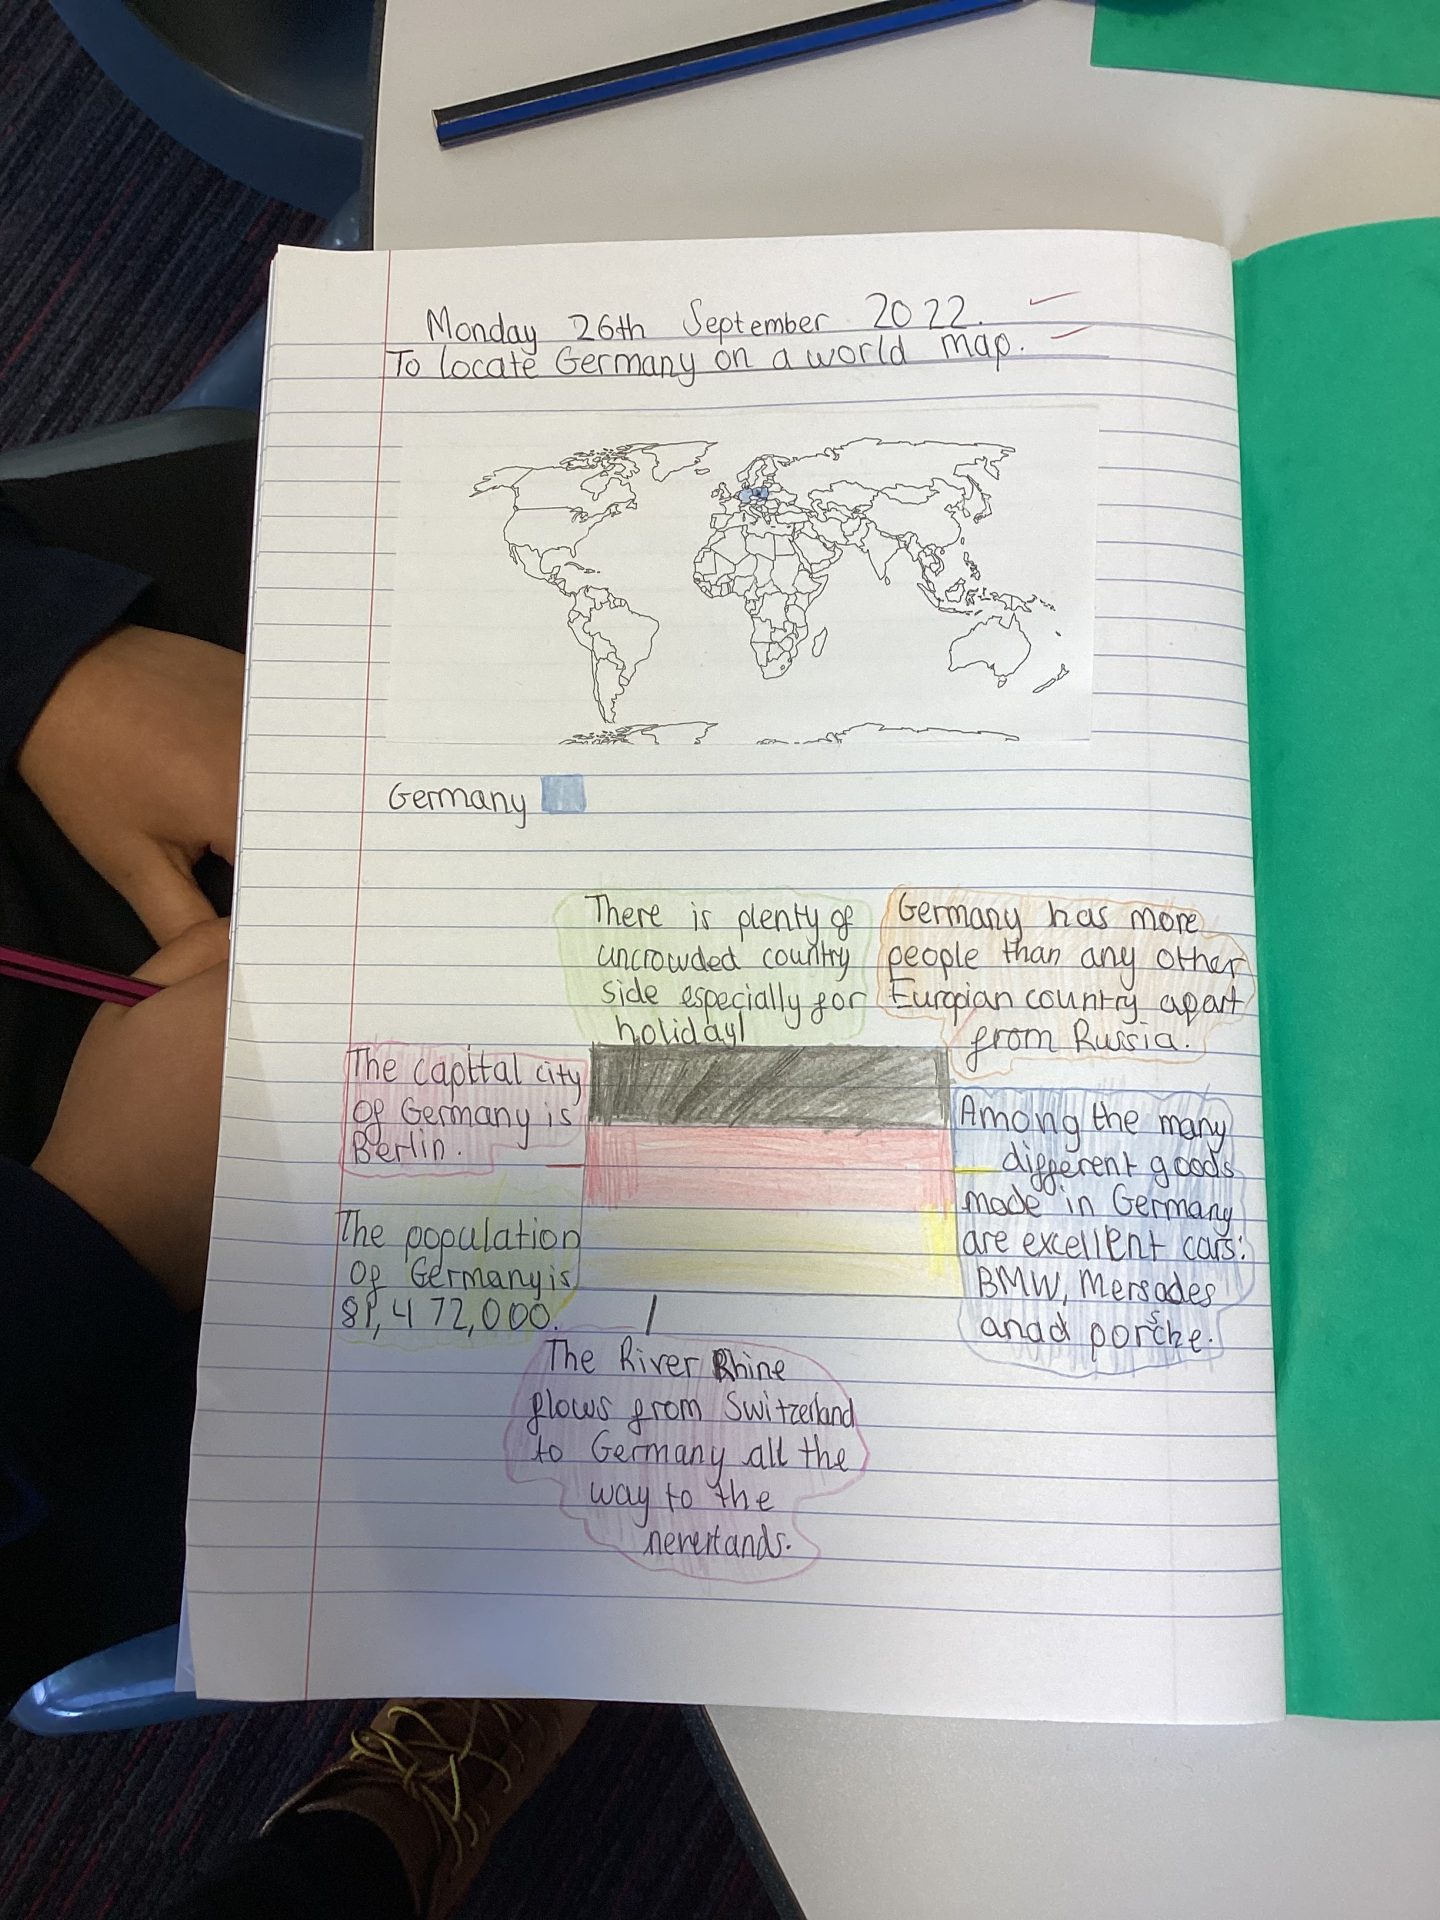 Monday 26th September 2022.
To locate Germany on a world map.
Germany
There is plenty of
uncrowded country
side especially for
holiday!
Germany has more
people than any other
Europian country apart
from Russia.
The capital city
of Germany is
Berlin.
Among the many
different goods
made in Germany
are excellent cars:
BMW, Mersades
anad porsche.
The population
of Germany is
81,472,000.
The River Rhine
flows from Switzerland
to Germany all the
way to the